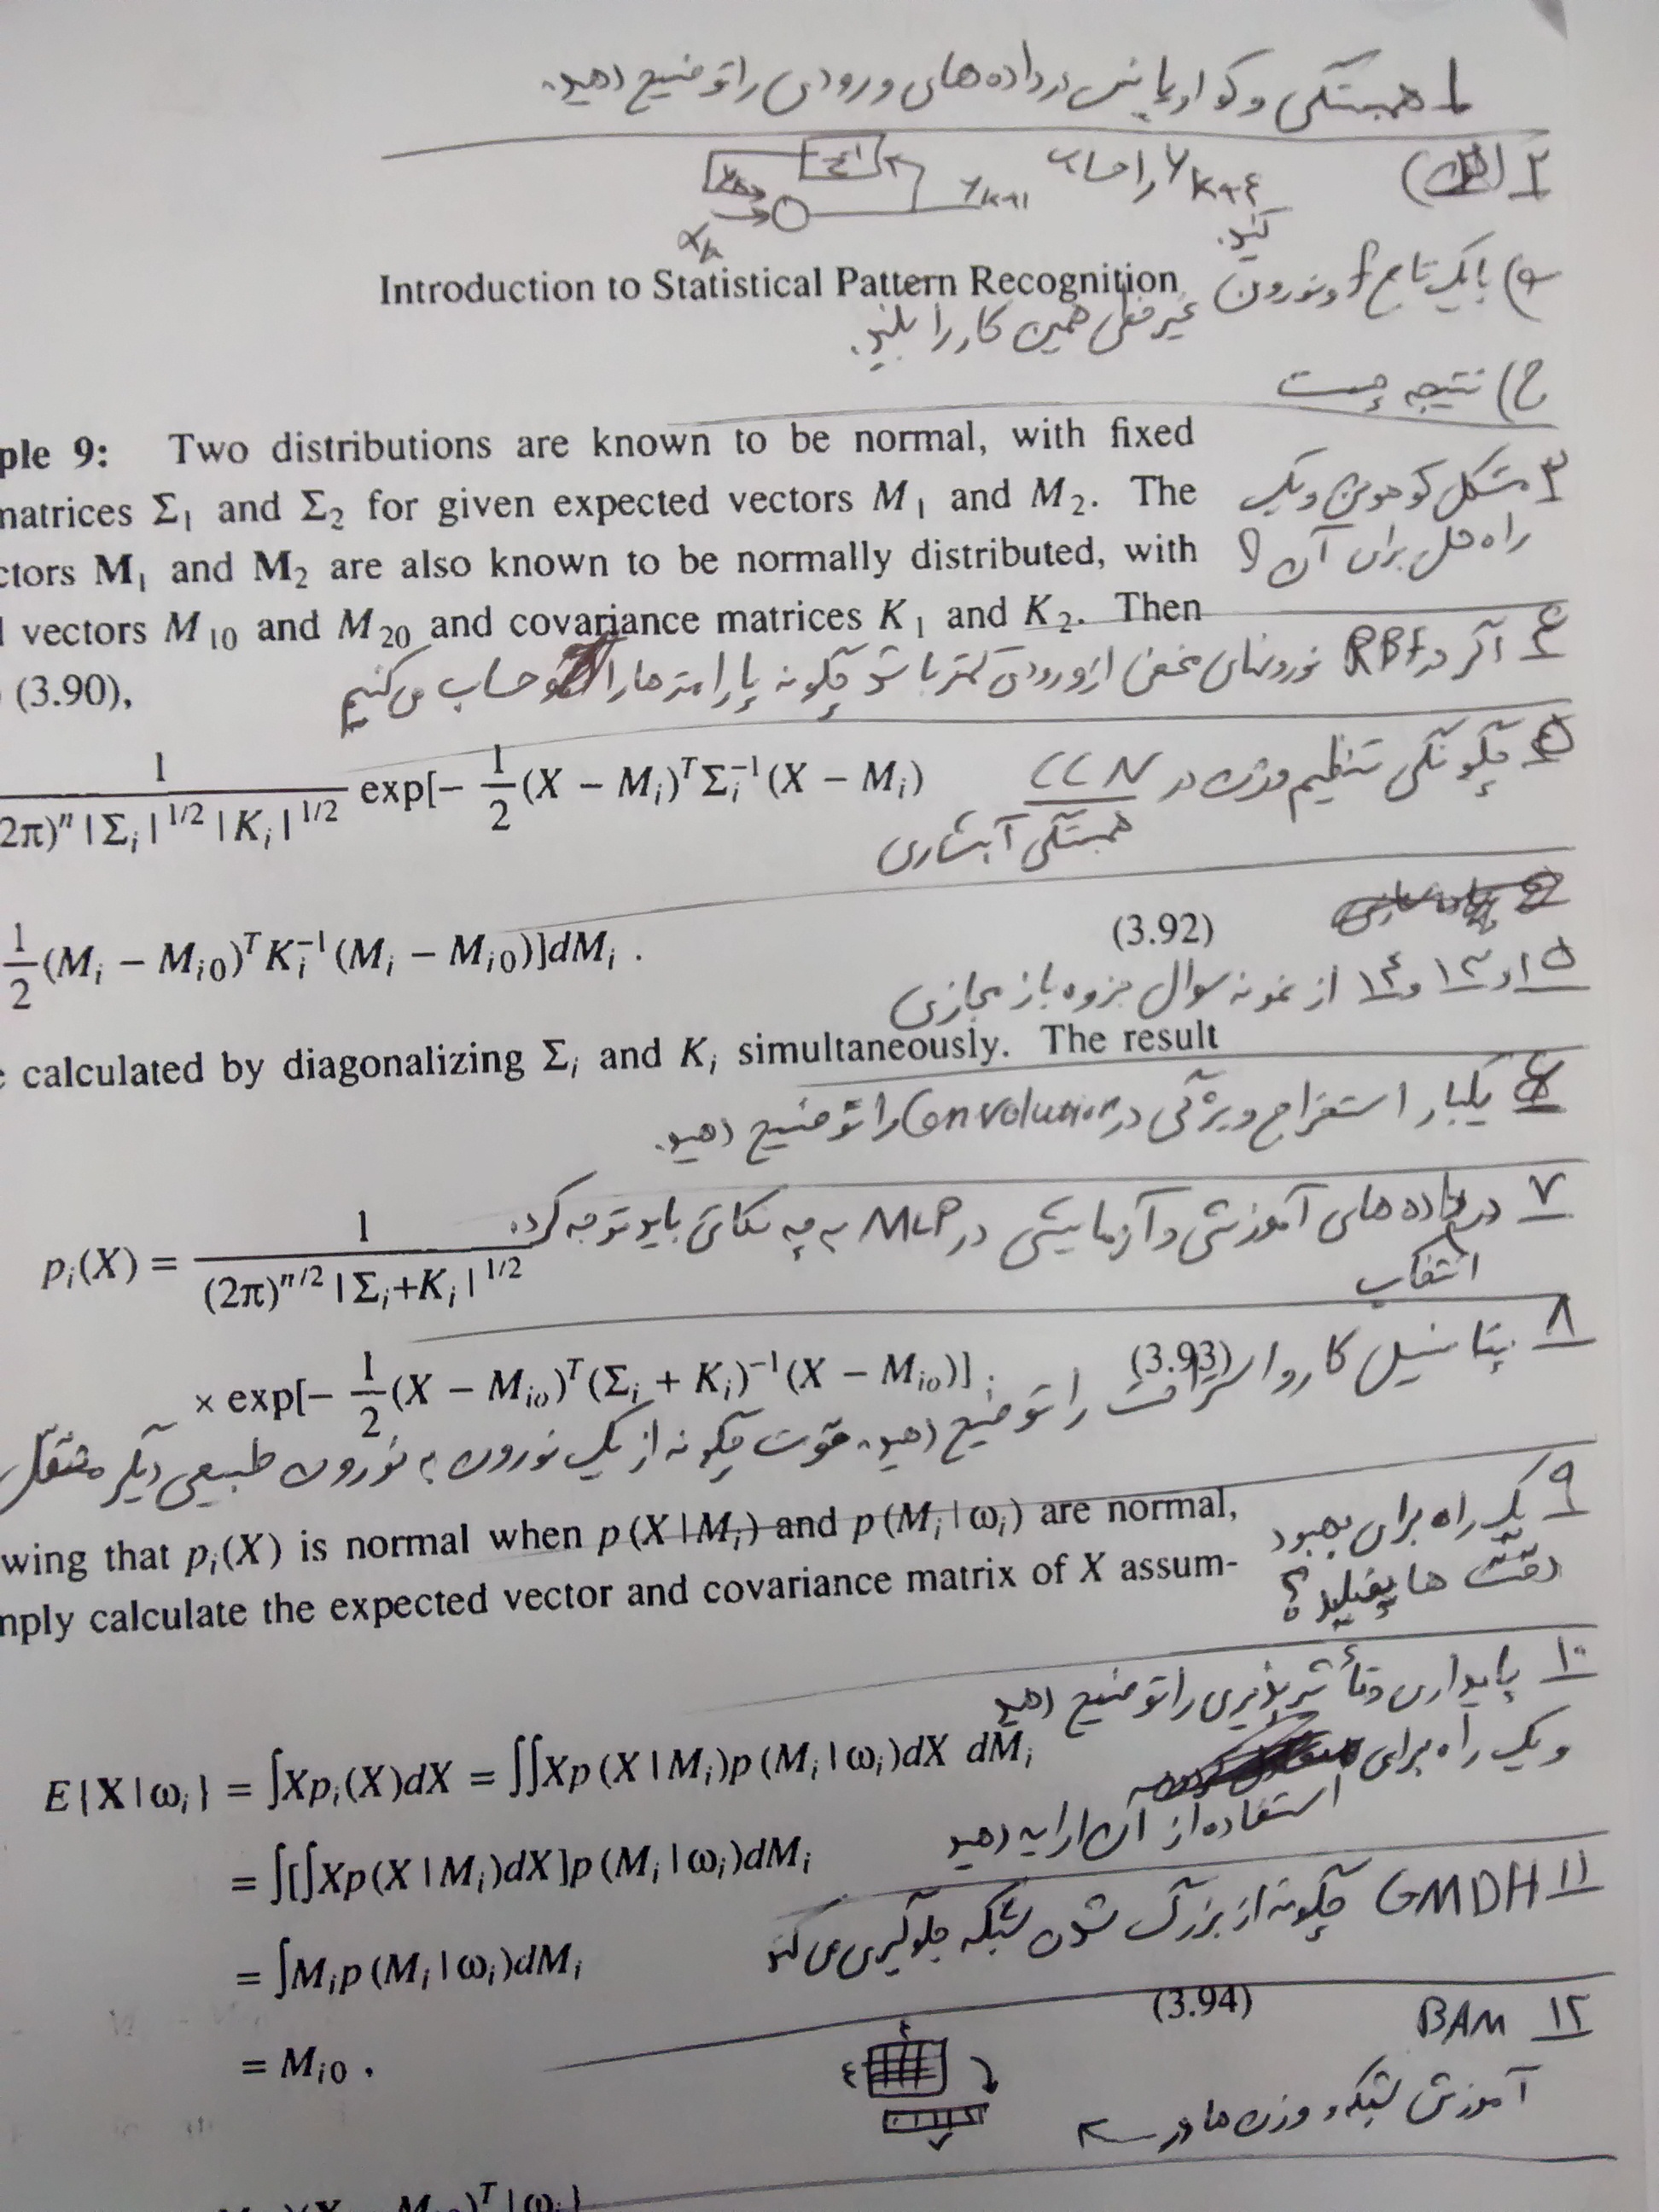 ۱ همبستگی و کواریانس در داده های ورودی را توضیح دهید.
۲ الف) Yk+4 را حساب
کنید.
Yk+1
Z-1
Xk
Introduction to Statistical Pattern Recognition
ب) با یک تابع f و نورون
غیر خطی همین کار را بکنید.
ج) نتیجه چیست
ple 9: Two distributions are known to be normal, with fixed
matrices Σ1 and Σ2 for given expected vectors M1 and M2. The
ctors M1 and M2 are also known to be normally distributed, with
l vectors M10 and M20 and covariance matrices K1 and K2. Then
(3.90),
۳ مشکل کوهونن و یک
راه حل برای آن ؟
۴ اگر در RBF نورونهای مخفی از ورودی کمتر باشد چگونه پارامترها را حساب می کنیم
1 / (2π)^n |Σi|^1/2 |Ki|^1/2 exp[− 1/2 (X − Mi)^T Σi^−1 (X − Mi)
۵ چگونگی تنظیم وزن در CCN
همبستگی آبشاری
1/2 (Mi − Mi0)^T Ki^−1 (Mi − Mi0)]dMi .
(3.92)
۱۵ و ۱۳ و ۱۴ از نمونه سوال جزوه باز مجازی
e calculated by diagonalizing Σi and Ki simultaneously. The result
۶ یکبار استخراج ویژگی در Convolution را توضیح دهید.
۷ در داده های آموزشی و آزمایشی در MLP به چه نکاتی باید توجه کرد.
انتخاب
pi(X) = 1 / (2π)^n/2 |Σi+Ki|^1/2
× exp[− 1/2 (X − Mio)^T (Σi + Ki)^−1 (X − Mio)] .
(3.93)
۸ پتانسیل کار و استراحت را توضیح دهید. قوت چگونه از یک نورون به نورون طبیعی دیگر منتقل
wing that pi(X) is normal when p(X|Mi) and p(Mi|ωi) are normal,
mply calculate the expected vector and covariance matrix of X assum-
۹ یک راه برای بهبود
دقت ها
۱۰ پایداری و تأثیرپذیری را توضیح دهید
و یک راه برای
استفاده از آن ارایه دهید
E{X|ωi} = ∫Xpi(X)dX = ∫∫Xp(X|Mi)p(Mi|ωi)dX dMi
= ∫[∫Xp(X|Mi)dX]p(Mi|ωi)dMi
۱۱ GMDH چگونه از بزرگ شدن شبکه جلوگیری می کند
= ∫Mip(Mi|ωi)dMi
(3.94)
= Mi0 .
۱۲ BAM
۴
۴
آموزش شبکه و وزن ها در